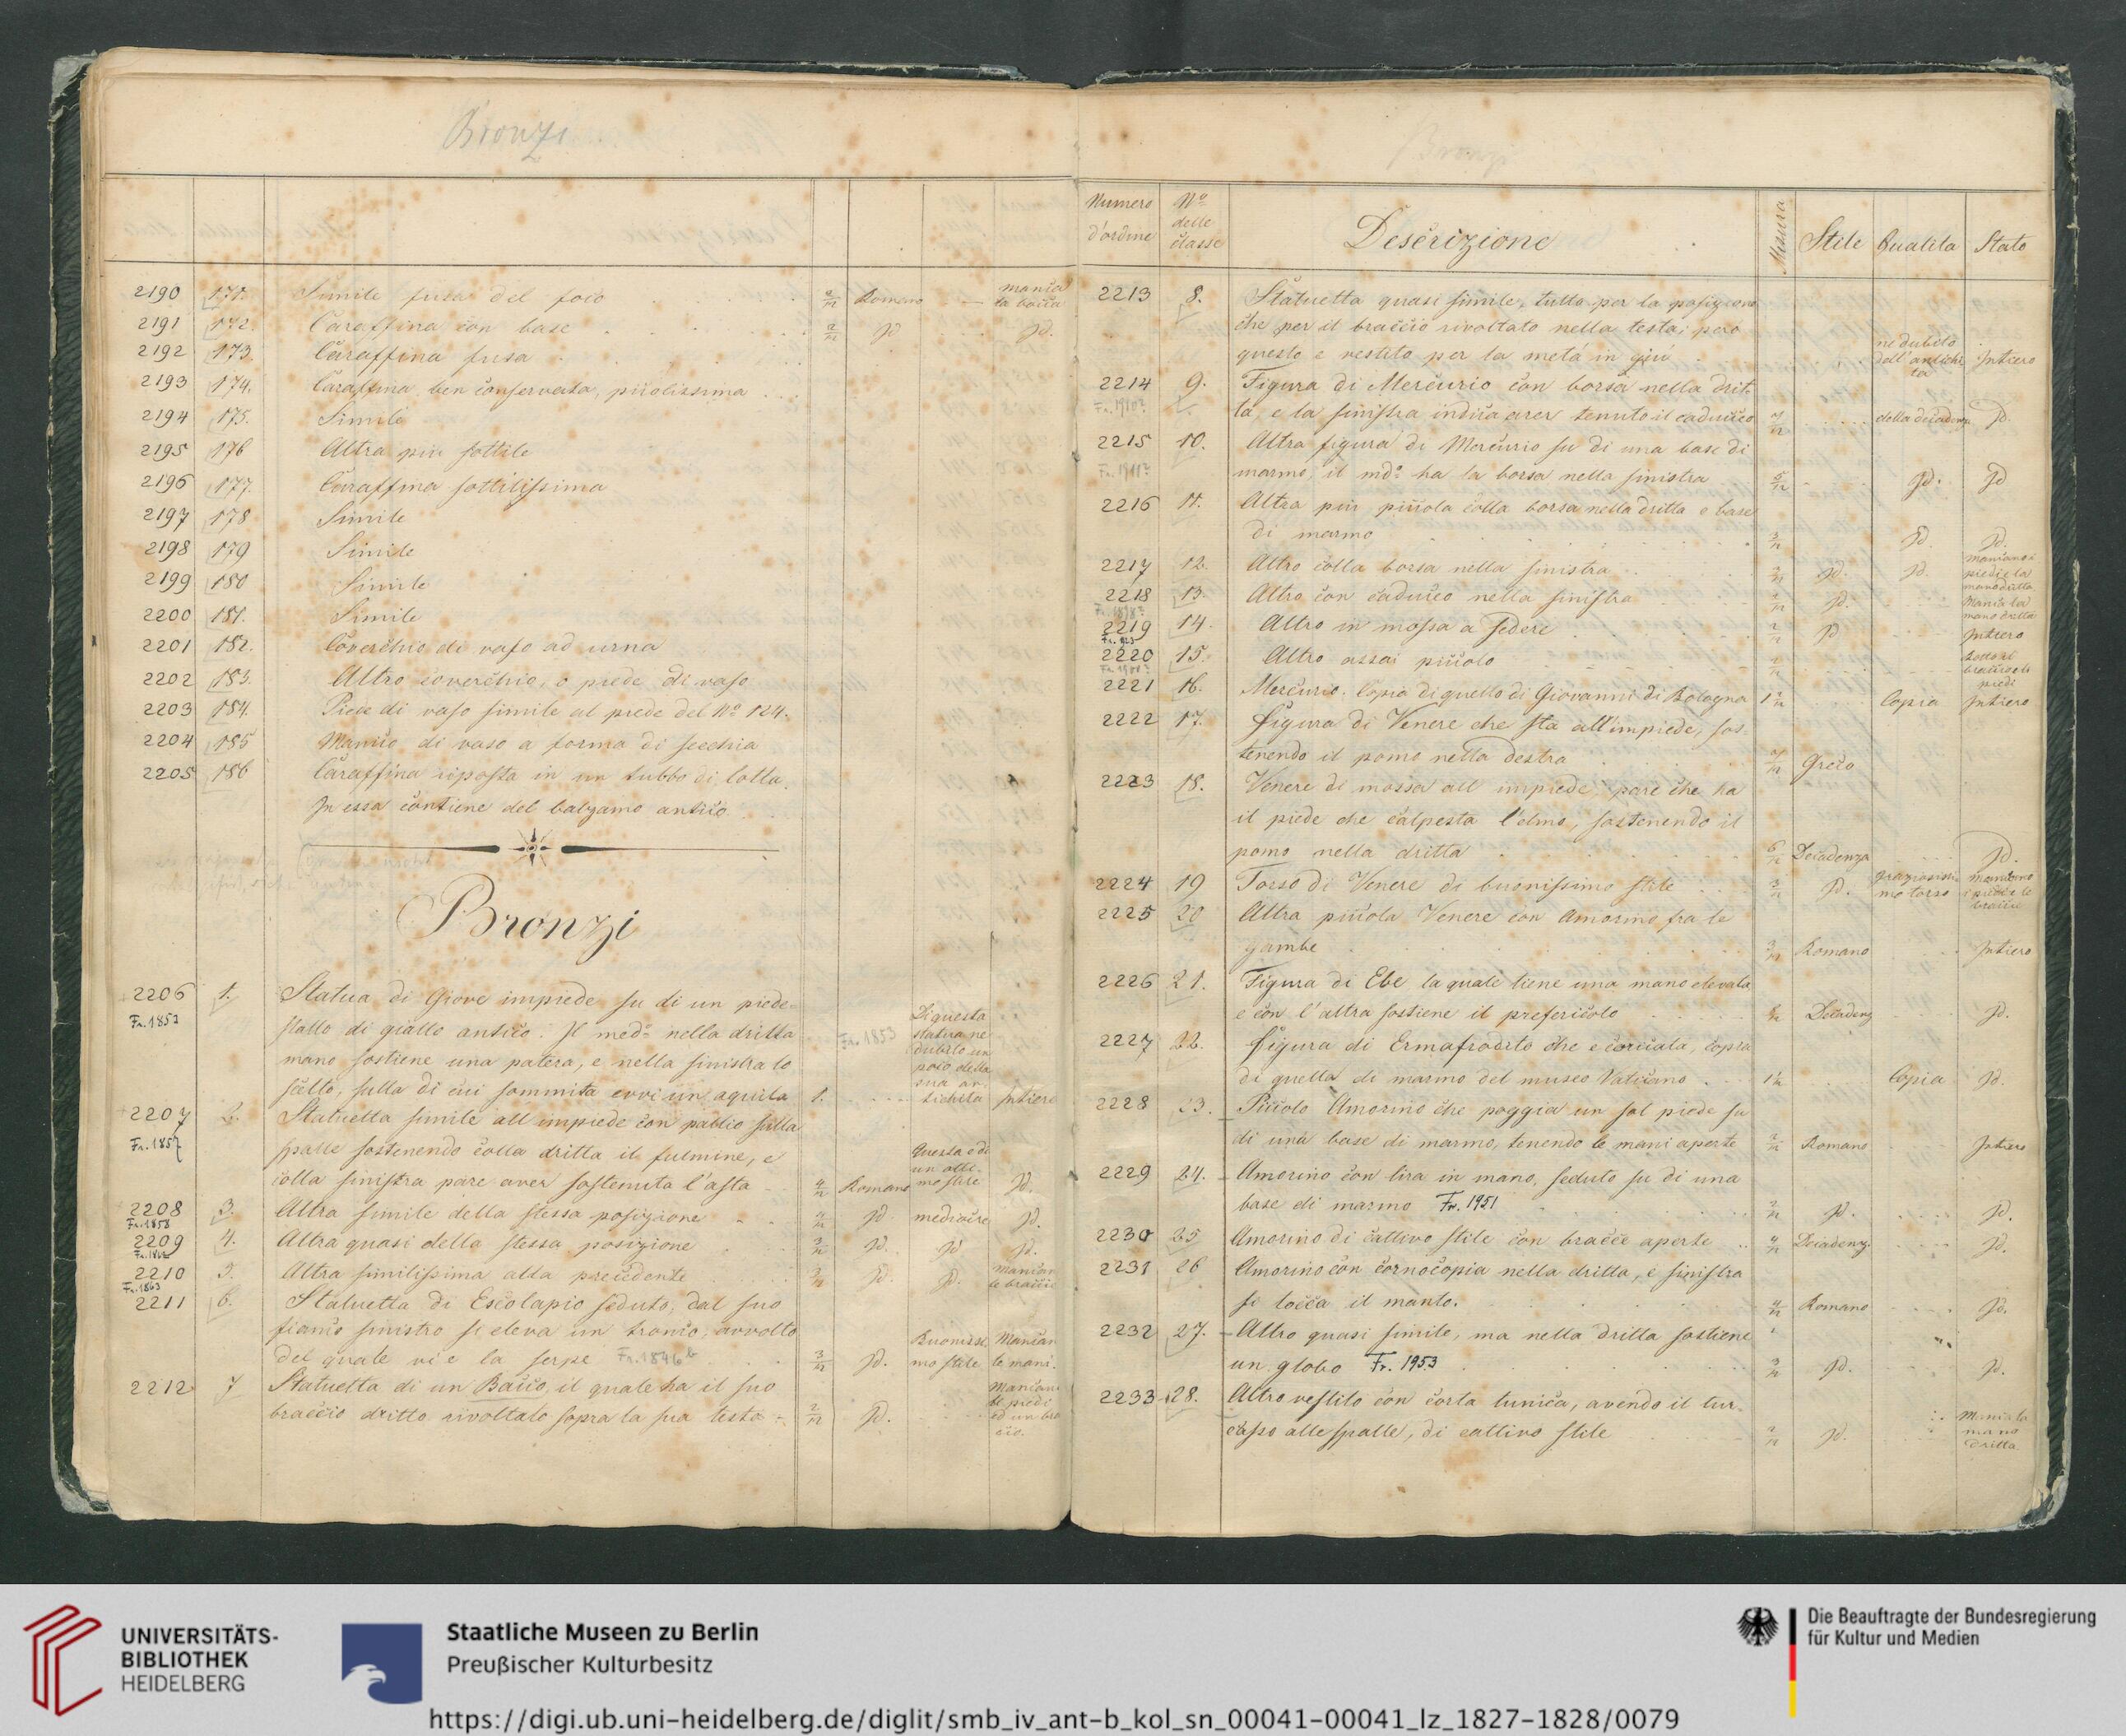 Bronzi
2190 171. Simile fusa del foco Romano manca la bocca
2191 172. Caraffina con base Id Id.
2192 173. Caraffina fusa
2193 174. Caraffina ben conservata, piccolissima
2194 175. Simile
2195 176 Altra piu sottile
2196 177. Caraffina sottilissima
2197 178 Simile
2198 179 Simile
2199 180 Simile
2200 181. Simile
2201 182. Coverchio di vaso ad urna
2202 183. Altro coverchio, o piede di vaso
2203 184. Piede di vaso simile al piede del No 124.
2204 185 Manico di vaso a forma di secchia
2205 186 Caraffina riposta in un tubbo di lotta.
In essa contiene del balzamo antico
Bronzi
2206 1. Statua di Giove impiede su di un piede=
Fr. 1853
stallo di giallo antico. Il medo nella dritta
Fr. 1853
mano sostiene una patera, e nella sinistra lo
scettro, sulla di cui sommita evvi un aquila 1.
Di questa statua ne dubito un poco della sua antichita Intiero
2207 2. Statuetta simile all impiede con pallio sulla
Fr. 1857
spalle sostenendo colla dritta il fulmine, e
colla sinistra pare aver sostenuta l'asta 4/12 Romano
Questa e di un ottimo stile Id.
2208 3. Altra simile della stessa posizione Id mediocre Id.
Fr. 1858
2209 4. Altra quasi della stessa posizione 3/12 Id. Id Id.
2210 5. Altra similissima alla precedente Id. Id. Mancan le braccia
Fr. 1863
2211 6. Statuetta di Escolapio seduto, dal suo
fianco sinistro si eleva un tronco, avvolto
del quale vi e la serpe Fr. 1846b 3/12 Id. Buonissimo stile Mancan le mani.
2212 7 Statuetta di un Bacco, il quale ha il suo
braccio dritto rivoltato sopra la sua testa 2/12 Id. Mancan le piedi ed un braccio.
Bronzi
Numero d'ordine No delle classe Descrizione Misura Stile Qualita Stato
2213 8. Statuetta quasi simile, tutto per la posizione
che per il braccio rivoltato nella testa; pero
questo e vestito per la metá in giú ne dubito dell'antichita Intiero
2214 9. Figura di Mercurio con borsa nella drit-
ta, e la sinistra indica aver tenuto il caduceo della decadenza Id.
2215 10. Altra figura di Mercurio su di una base di
marmo, il mdo ha la borsa nella sinistra Id. Id
2216 11. Altra piu piccola colla borsa nella dritta e base
di marmo 3/12 Id Id.
2217 12. Altro colla borsa nella sinistra Id. Id. Mancano i piedi e la mano dritta
2218 13. Altro con caduceo nella sinistra Id. Manca la mano dritta
2219 14. Altro in mossa a sedere Id Intiero
2220 15. Altro assai piccolo
2221 16. Mercurio. Copia di quello di Giovanni di Bologna Copia Intiero
2222 17. Figura di Venere che sta all'impiede, sos-
tenendo il pomo nella destra Greco
2223 18. Venere di mossa all impiede pare che ha
il piede che calpesta l'elmo, sostenendo il
pomo nella dritta 6/12 Decadenza Id.
2224 19 Torso di Venere di buonissimo stile 3/12 Id. graziosissimo torso Mancano i piedi e le braccie
2225 20 Altra piccola Venere con Amorino fra le
gambe Romano Intiero
2226 21. Figura di Ebe la quale tiene una mano elevata
e con l'altra sostiene il prefericolo Decadenz Id.
2227 22. Figura di Ermafrodito che e corciata, copia
di quella di marmo del museo Vaticano Copia Id.
2228 23. Piccolo Amorino che poggia un sol piede su
di una base di marmo, tenendo le mani aperte Romano Intiero
2229 24. Amorino con lira in mano, seduto su di una
base di marmo Fr. 1951 Id. Id.
2230 25 Amorino di cattivo stile con bracce aperte Decadenz. Id.
2231 26 Amorino con cornocopia nella dritta, e sinistra
si tocca il manto. Romano Id.
2232 27. Altro quasi simile, ma nella dritta sostiene
un globo Fr. 1953 Id. Id.
2233 28. Altro vestito con corta tunica, avendo il tur-
casso alle spalle, di cattivo stile Id. Manca la mano dritta
UNIVERSITÄTS-
BIBLIOTHEK
HEIDELBERG
Staatliche Museen zu Berlin
Preußischer Kulturbesitz
Die Beauftragte der Bundesregierung
für Kultur und Medien
https://digi.ub.uni-heidelberg.de/diglit/smb_iv_ant-b_kol_sn_00041-00041_lz_1827-1828/0079